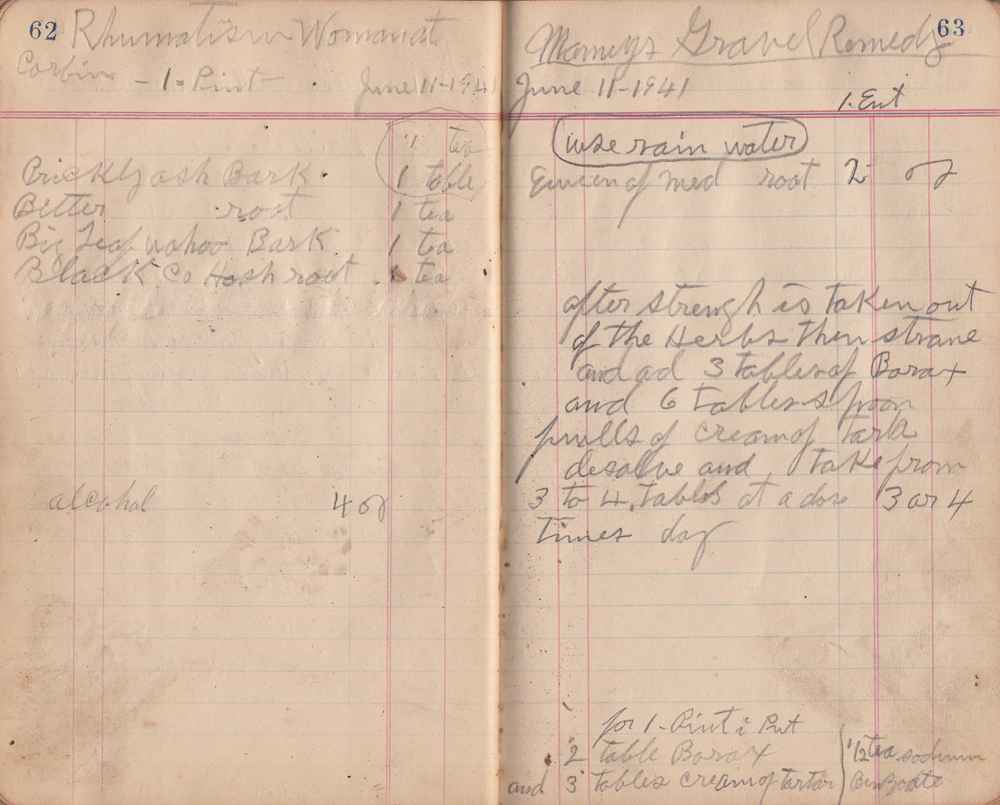 62
Rhumatism Woman at
Corbin - 1-Pint - June 11-1941
1 tea
Prickly ash Bark 1 table
Better root 1 tea
Big Leaf wahoo Bark 1 tea
Black Co Hosh root 1 tea
alcohol 4 oz
63
Gravel Remedy
June 11-1941
1. Ent
use rain water
Queen of Med root 2 oz
after strengh is taken out
of the Herbs then strane
and ad 3 tables of Borax
and 6 tables spoon
fulls of cream of tarta
desolve and take from
3 to 4 tables at a dose 3 or 4
times day
for 1-Pint i Put
2 table Borax
and 3 tables cream of tartar
1/2 tea sodium
Benzoate